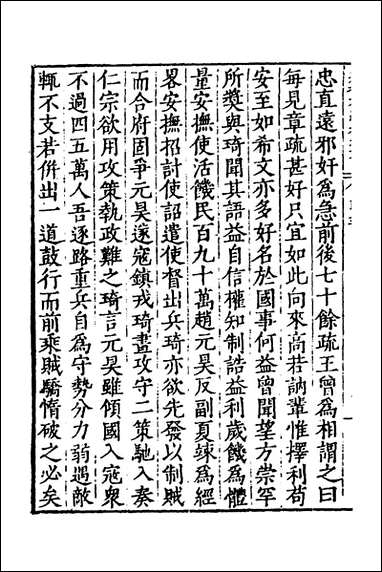 忠直遠邪奸為急前後七十餘疏王曾為相謂之曰
每見章疏甚好只宜如此向來高若訥輩惟擇利苟
安至如希文亦多好名於國事何益曾聞望方崇罕
所奬與琦聞其語益自信權知制誥益利歲饑為體
量安撫使活饑民百九十萬趙元昊反副夏竦為經
畧安撫招討使詔遣使督出兵琦亦欲先發以制賊
而合府固爭元昊遂寇鎮戎琦畫攻守二策馳入奏
仁宗欲用攻策執政難之琦言元昊雖傾國入寇衆
不過四五萬人吾逐路重兵自為守勢分力弱遇敵
輒不支若併出一道鼓行而前乘賊驕惰破之必矣